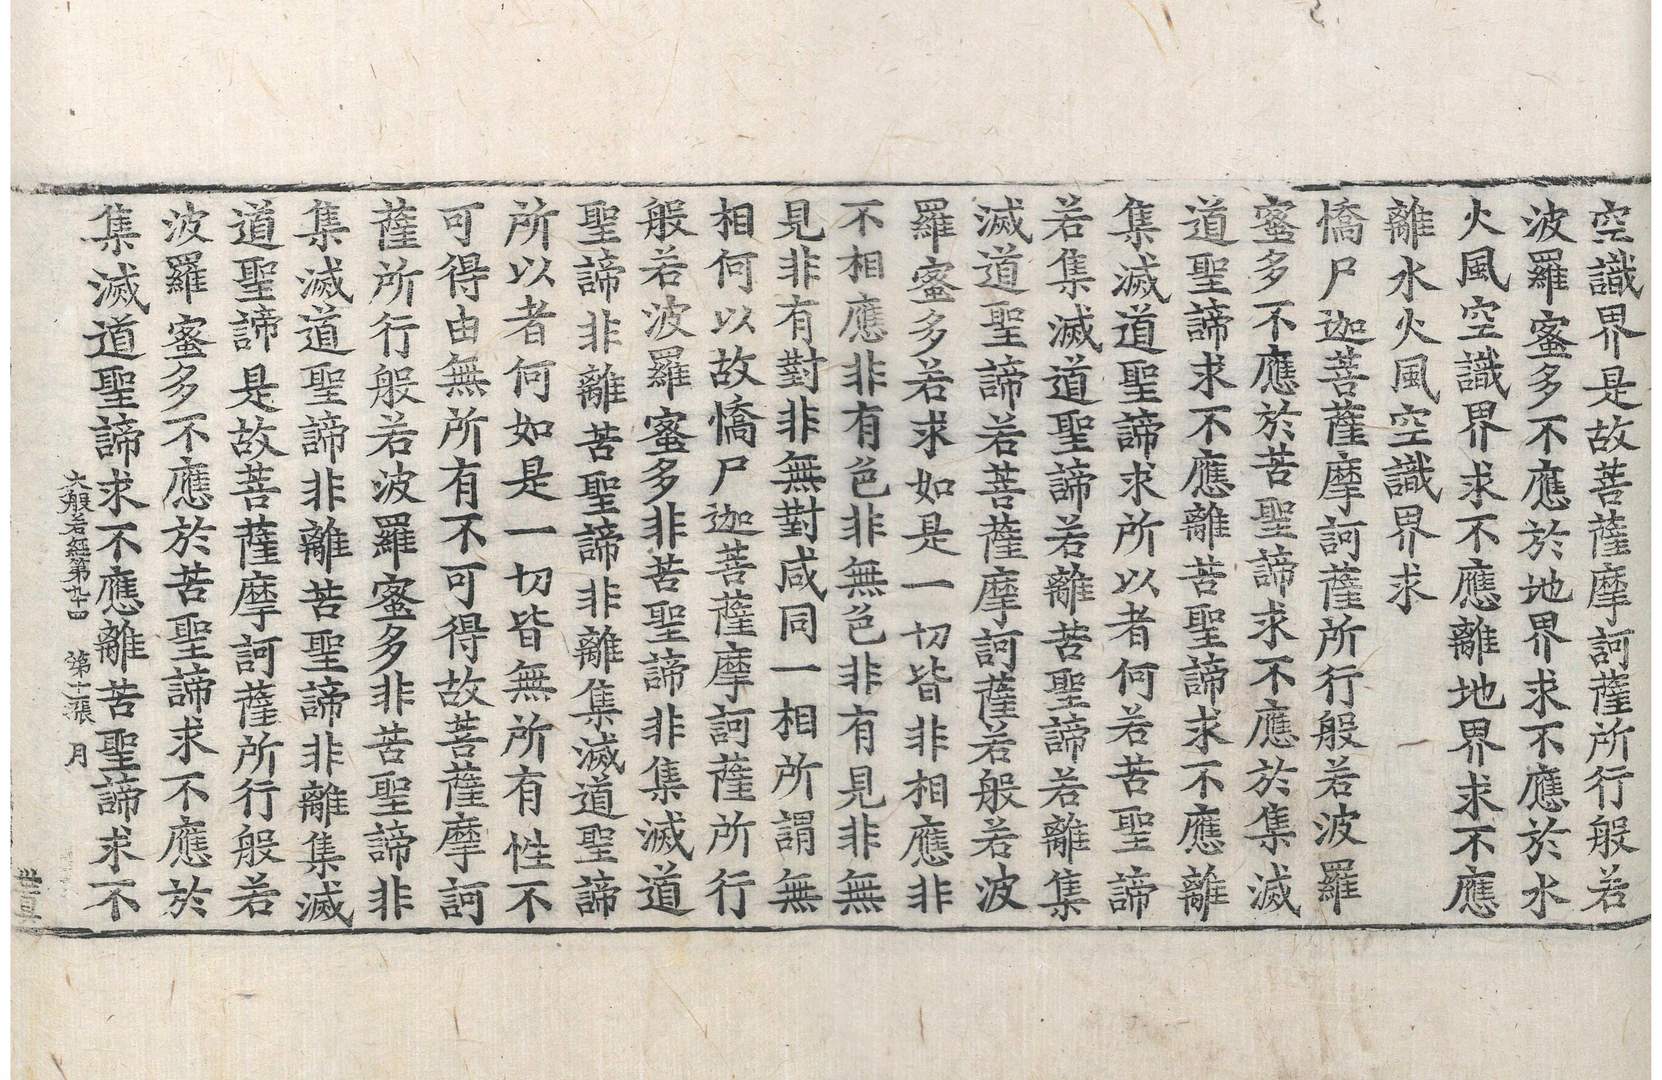 空識界是故菩薩摩訶薩所行般若
波羅蜜多不應於地界求不應於水
火風空識界求不應離地界求不應
離水火風空識界求
憍尸迦菩薩摩訶薩所行般若波羅
蜜多不應於苦聖諦求不應於集滅
道聖諦求不應離苦聖諦求不應離
集滅道聖諦求所以者何若苦聖諦
若集滅道聖諦若離苦聖諦若離集
滅道聖諦若菩薩摩訶薩若般若波
羅蜜多若求如是一切皆非相應非
不相應非有色非無色非有見非無
見非有對非無對咸同一相所謂無
相何以故憍尸迦菩薩摩訶薩所行
般若波羅蜜多非苦聖諦非集滅道
聖諦非離苦聖諦非離集滅道聖諦
所以者何如是一切皆無所有性不
可得由無所有不可得故菩薩摩訶
薩所行般若波羅蜜多非苦聖諦非
集滅道聖諦非離苦聖諦非離集滅
道聖諦是故菩薩摩訶薩所行般若
波羅蜜多不應於苦聖諦求不應於
集滅道聖諦求不應離苦聖諦求不
大般若經第九十四 第十張 月